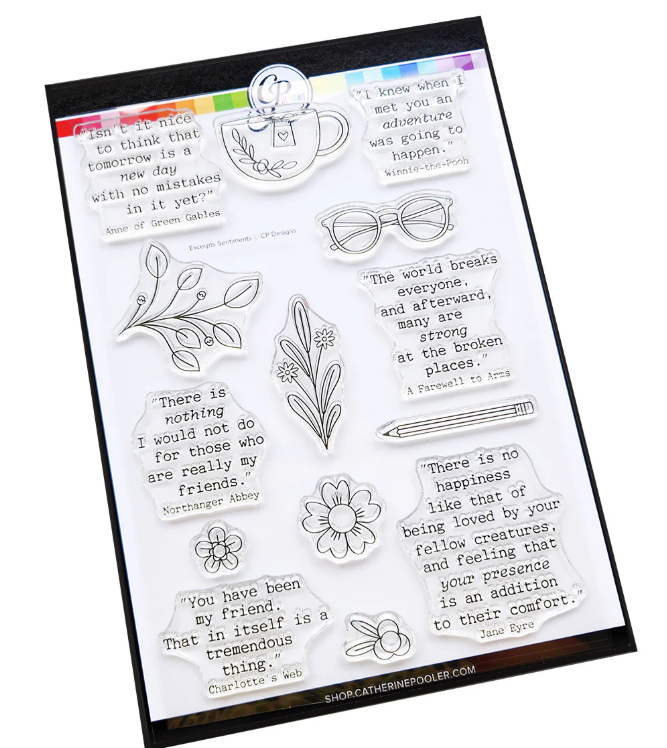 CP
"Isn't it nice
to think that
tomorrow is a
new day
with no mistakes
in it yet?"
Anne of Green Gables
"I knew when I
met you an
adventure
was going to
happen."
Winnie-the-Pooh
Excerpts Sentiments © CP Designs
"The world breaks
everyone,
and afterward,
many are
strong
at the broken
places."
A Farewell to Arms
"There is
nothing
I would not do
for those who
are really my
friends."
Northanger Abbey
"There is no
happiness
like that of
being loved by your
fellow creatures,
and feeling that
your presence
is an addition
to their comfort."
Jane Eyre
"You have been
my friend.
That in itself is a
tremendous
thing."
Charlotte's Web
SHOP.CATHERINEPOOLER.COM